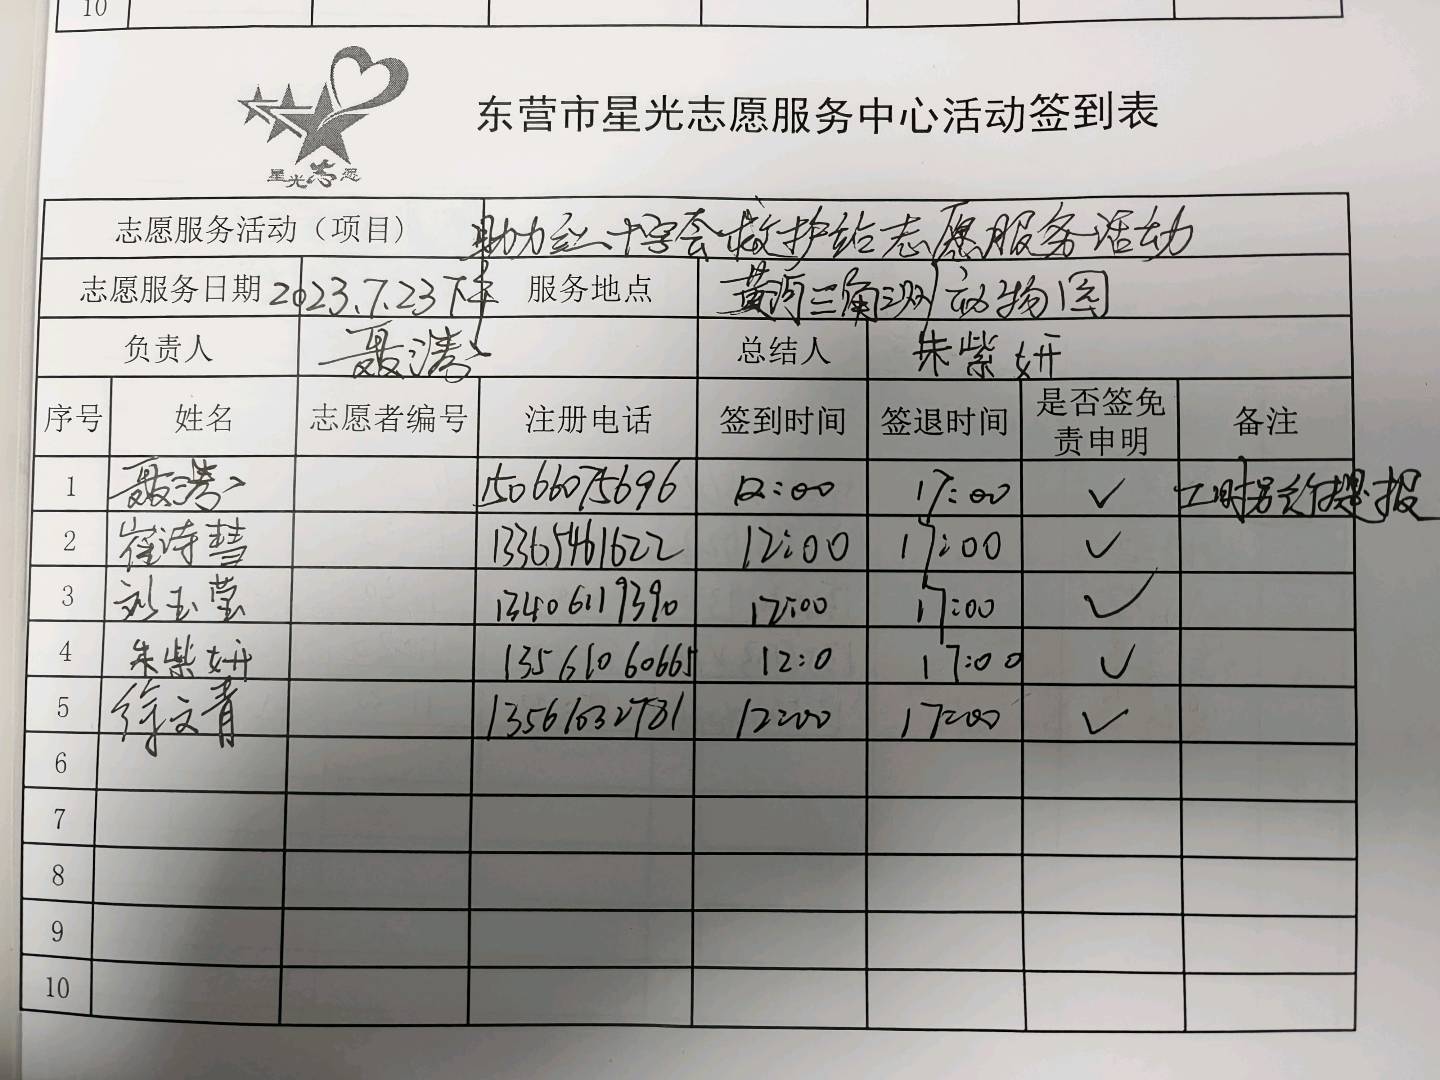 10
星光志愿
东营市星光志愿服务中心活动签到表
志愿服务活动（项目） 助力红十字会救护站志愿服务活动
志愿服务日期 2023.7.23下午 服务地点 黄河三角洲动物园
负责人 聂清 总结人 朱紫妍
序号 姓名 志愿者编号 注册电话 签到时间 签退时间 是否签免责申明 备注
1 聂清 15066075696 12:00 17:00 ✓
2 崔诗彗 13365461622 12:00 17:00 ✓
3 刘玉莹 13406119390 12:00 17:00 ✓
4 朱紫妍 13561060665 12:0 17:00 ✓
5 徐文青 13561032781 12:00 17:00 ✓
6
7
8
9
10